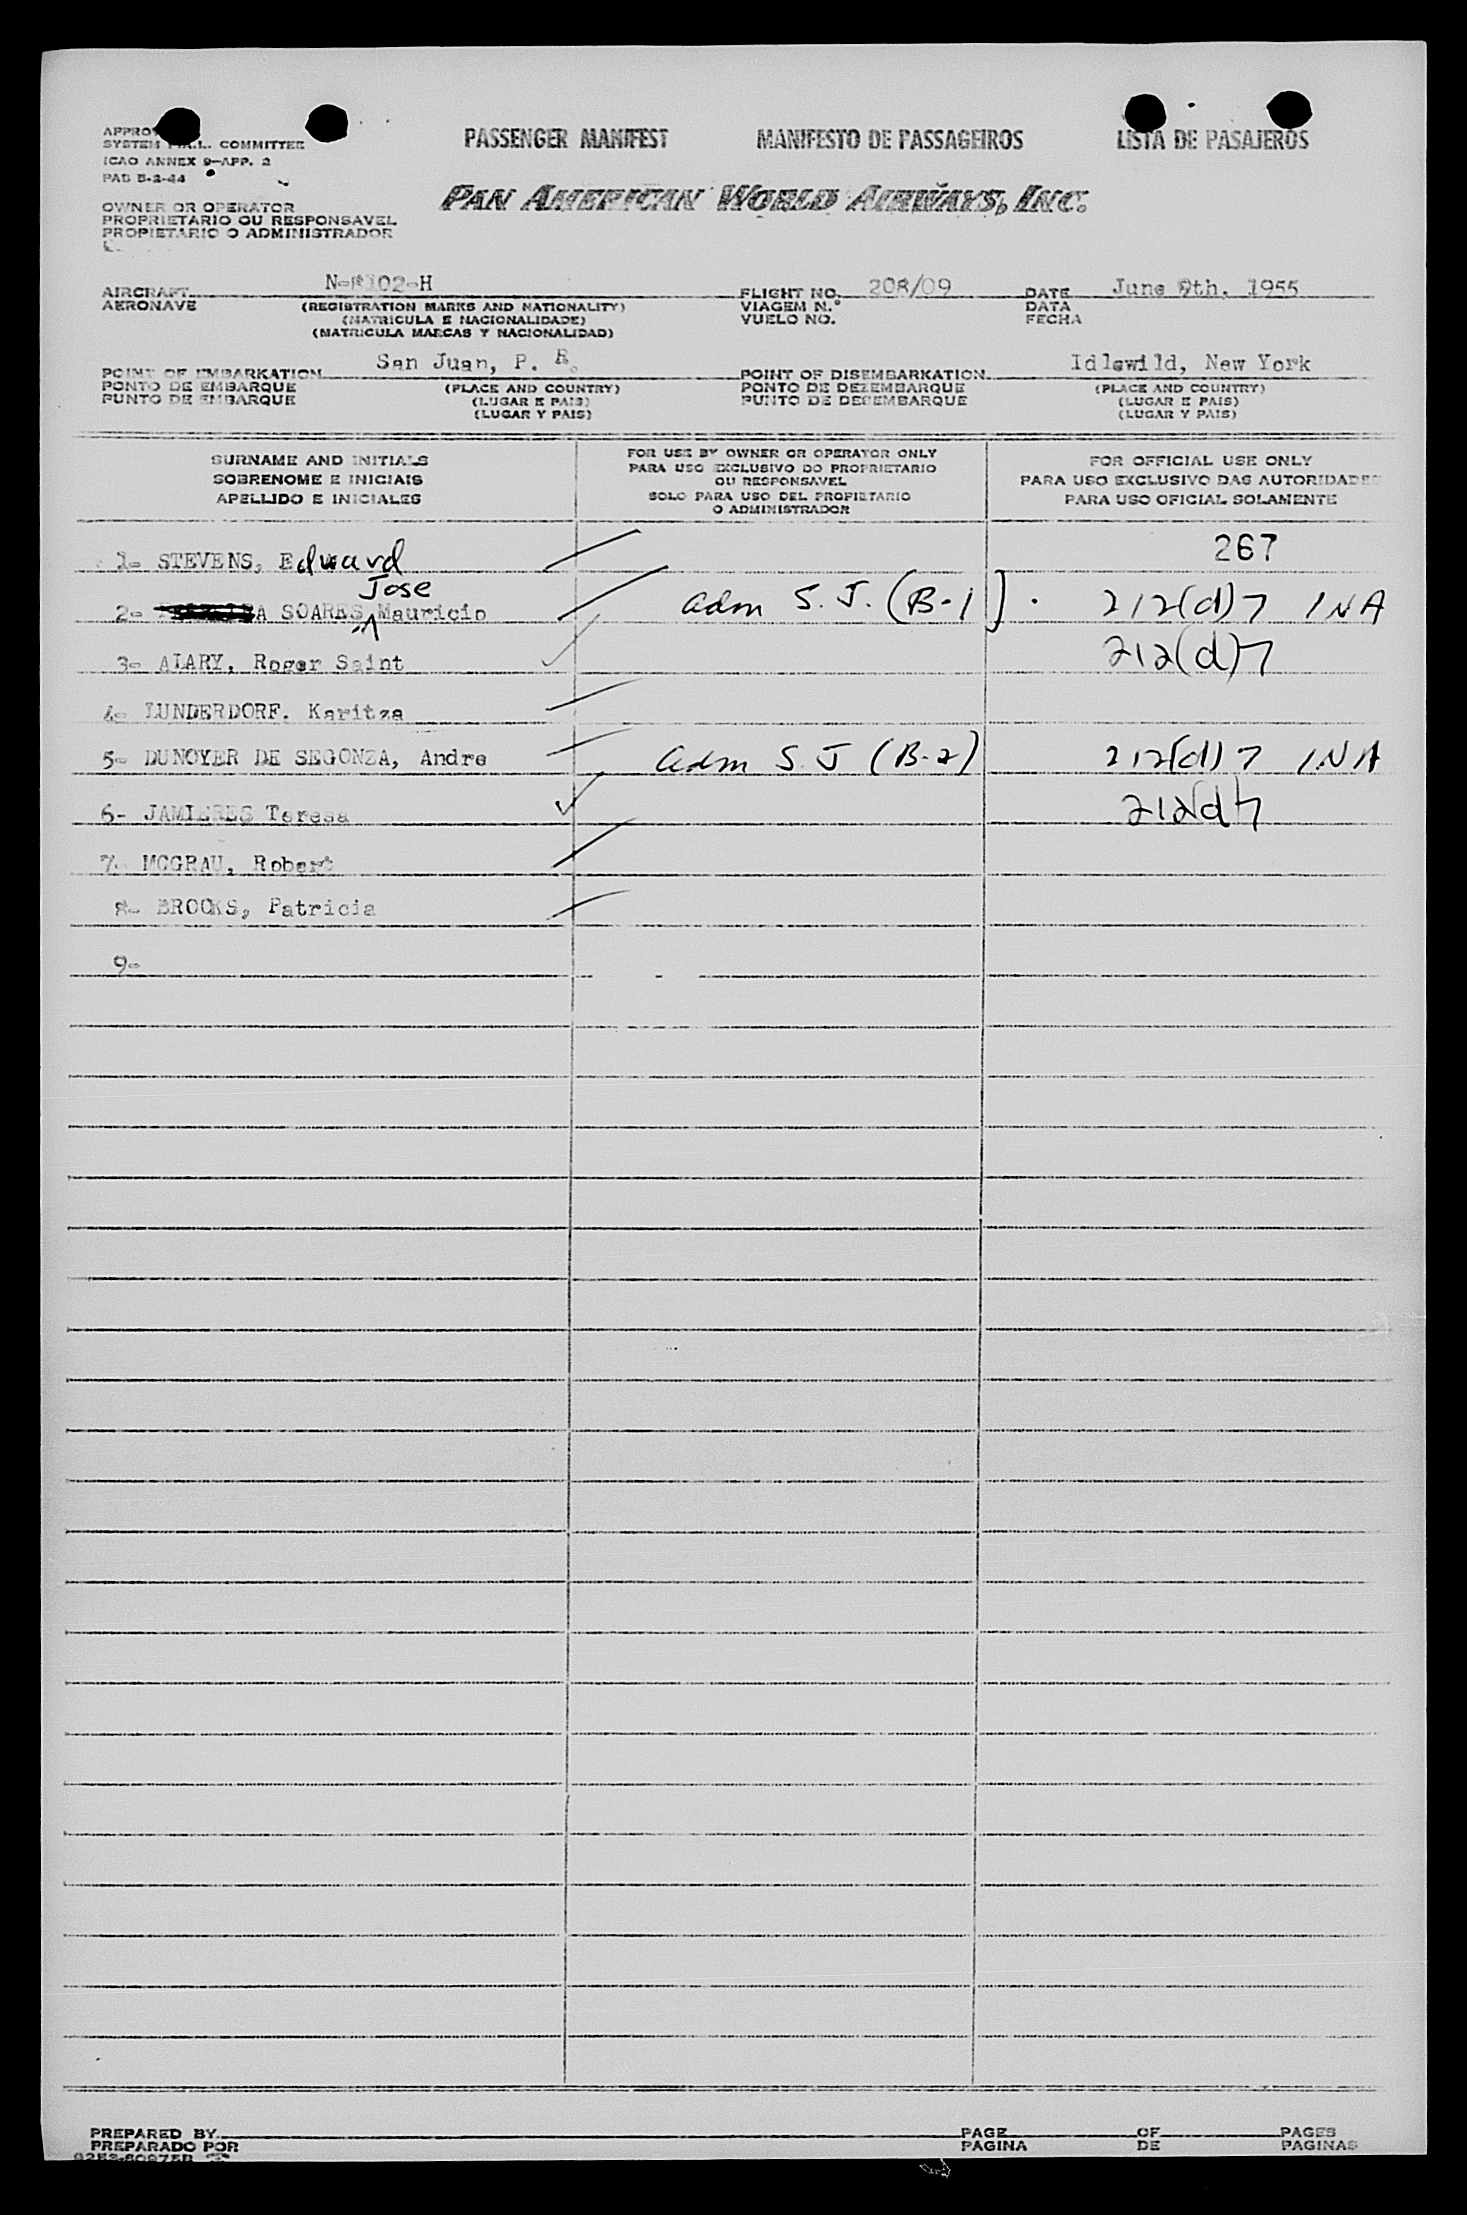 PASSENGER MANIFEST MANIFESTO DE PASSAGEIROS LISTA DE PASAJEROS
SYSTEM COMMITTEE
ICAO ANNEX 9-APP. 2
PAD 5-2-44
PAN AMERICAN WORLD AIRWAYS, INC.
OWNER OR OPERATOR
PROPRIETARIO OU RESPONSAVEL
PROPIETARIO O ADMINISTRADOR
AIRCRAFT
AERONAVE
(REGISTRATION MARKS AND NATIONALITY)
(MATRICULA E NACIONALIDADE)
(MATRICULA MARCAS Y NACIONALIDAD)
FLIGHT NO. 208/09
VIAGEM N.º
VUELO NO.
DATE June 9th, 1955
DATA
FECHA
POINT OF EMBARKATION San Juan, P. R.
PONTO DE EMBARQUE
PUNTO DE EMBARQUE
(PLACE AND COUNTRY)
(LUGAR E PAIS)
(LUGAR Y PAIS)
POINT OF DISEMBARKATION Idlewild, New York
PONTO DE DEZEMBARQUE
PUNTO DE DECEMBARQUE
(PLACE AND COUNTRY)
(LUGAR E PAIS)
(LUGAR Y PAIS)
SURNAME AND INITIALS
SOBRENOME E INICIAIS
APELLIDO E INICIALES
FOR USE BY OWNER OR OPERATOR ONLY
PARA USO EXCLUSIVO DO PROPRIETARIO
OU RESPONSAVEL
SOLO PARA USO DEL PROPIETARIO
O ADMINISTRADOR
FOR OFFICIAL USE ONLY
PARA USO EXCLUSIVO DAS AUTORIDADES
PARA USO OFICIAL SOLAMENTE
1- STEVENS, Edward 267
Jose
2- SOARES, Mauricio Adm S. J. (B-1) 212(d)7 INA
3- ALARY, Roger Saint 212(d)7
4- LUNDERDORF. Karitza
5- DUNOYER DE SEGONZA, Andre Adm S. J (B-2) 212(d)7 INA
6- Teresa 212(d)7
7- MCGRAU, Robert
8- BROOKS, Patricia
9-
PREPARED BY
PREPARADO POR
PAGE OF PAGES
PAGINA DE PAGINAS